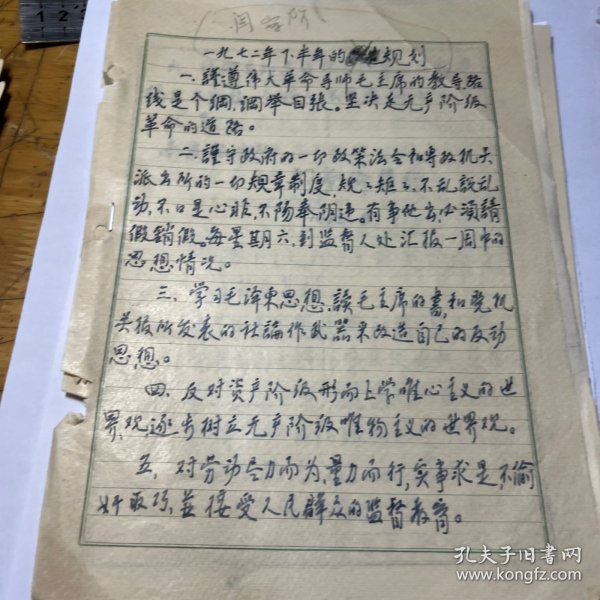 闫
一九七二年下半年的规划
一、謹遵伟大革命导师毛主席的教导路
线是个綱,綱举目張。坚决走无产阶级
革命的道路。
二、謹守政府的一切政策法令和专政机关
派出所的一切规章制度,规规矩矩,不乱說乱
动,不口是心非,不陽奉阴违。有事他出,必須請
假銷假,每星期六,到监督人处汇报一周中的
思想情况。
三、学习毛泽東思想,讀毛主席的書,和党机
关报所发表的社論作武器来改造自己的反动
思想。
四、反对资产阶级形而上学唯心主义的世
界观,逐步树立无产阶级唯物主义的世界观。
五、对劳动尽力而为,量力而行,实事求是,不偷
奸取巧,並接受人民群众的监督教育。
孔夫子旧书网
www.kongfz.com